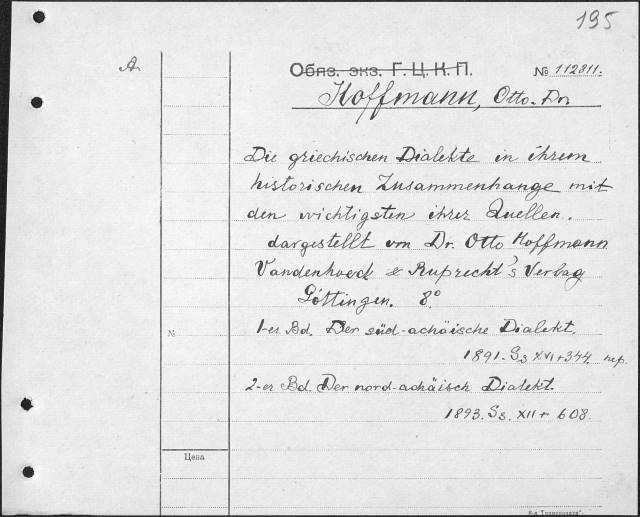 195
A.
Обяз. экз. Г. Ц. К. П. № 112311.
Hoffmann, Otto. Dr.
Die griechischen Dialekte in ihrem
historischen Zusammenhange mit
den wichtigsten ihrer Quellen.
dargestellt von Dr. Otto Hoffmann
Vandenhoeck & Ruprecht's Verlag
Göttingen. 8°
№ 1-er Bd. Der süd-achäische Dialekt.
1891. Ss XVI+344. пер.
2-er Bd. Der nord-achäisch Dialekt.
1893. Ss. XII + 608.
Цена